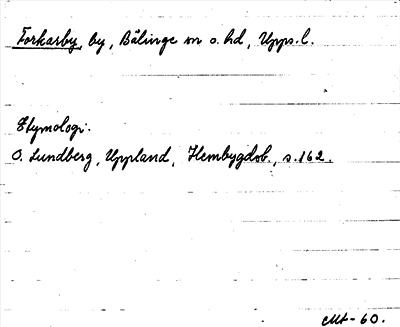 Forkarby, by, Bälinge sn o. hd, Upps. l.
Etymologi:
O. Lundberg, Uppland, Hembygdsb., s. 162.
-60.